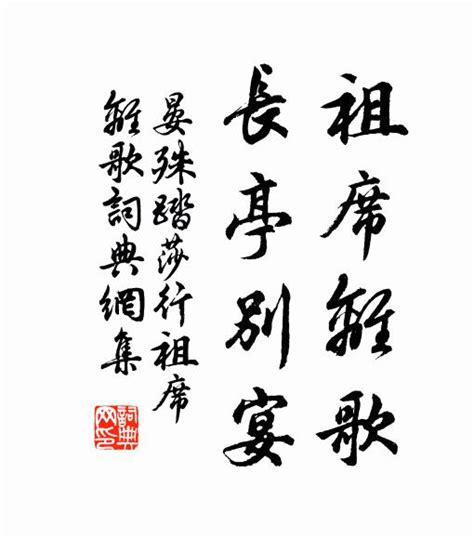 祖席離歌
長亭別宴
晏殊踏莎行祖席
離歌詞典網集
詞典
网印